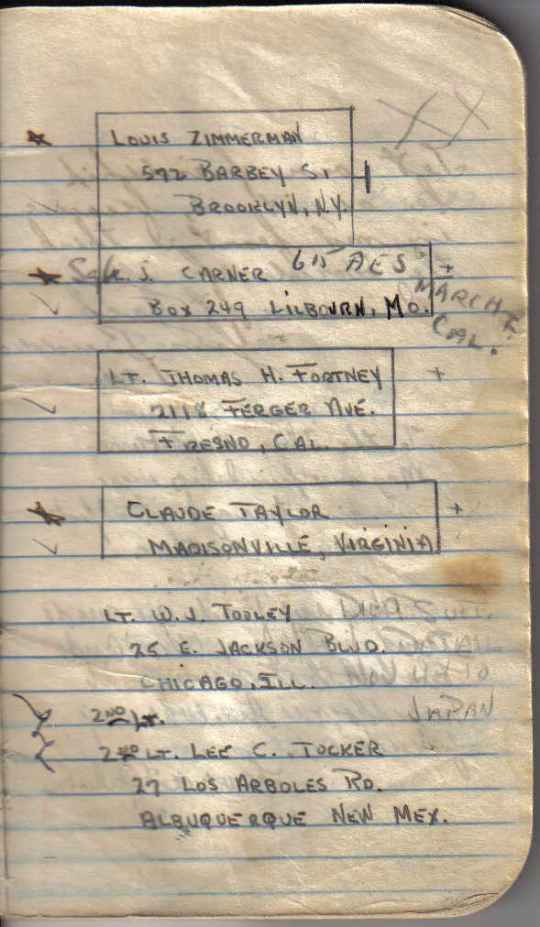 LOUIS ZIMMERMAN
592 BARBEY ST
BROOKLYN, N.Y.
S. CARNER 615 AES
BOX 249 LILBOURN, MO.
MARCH F.
CAL.
LT. THOMAS H. FORTNEY
2118 FERGER AVE.
FRESNO, CAL.
CLAUDE TAYLOR
MADISONVILLE, VIRGINIA
LT. W. J. TOOLEY DIED
25 E. JACKSON BLVD.
CHICAGO, ILL.
JAPAN
2ND LT.
2ND LT. LEE C. TUCKER
27 LOS ARBOLES RD.
ALBUQUERQUE NEW MEX.